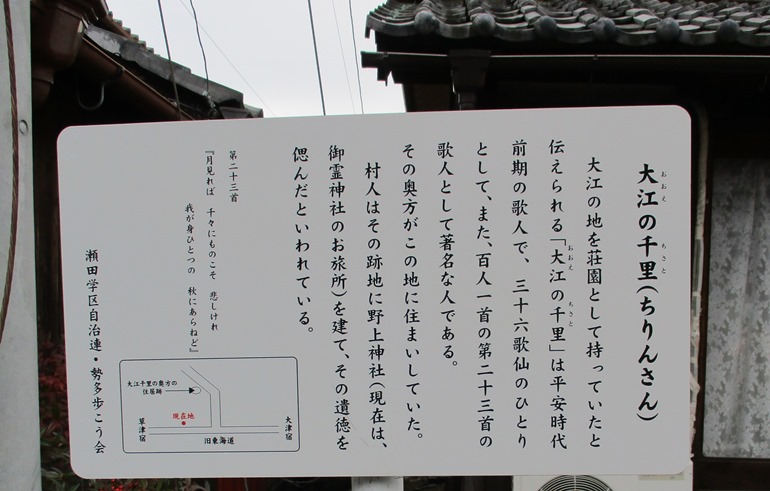 大江の千里(ちりんさん)
おおえ
ちさと
大江の地を荘園として持っていたと
伝えられる「大江の千里」は平安時代
おおえ
ちさと
前期の歌人で、三十六歌仙のひとり
として、また、百人一首の第二十三首の
歌人として著名な人である。
その奥方がこの地に住まいしていた。
村人はその跡地に野上神社(現在は、
御霊神社のお旅所)を建て、その遺徳を
偲んだといわれている。
第二十三首
『月見れば 千々にものこそ 悲しけれ
我が身ひとつの 秋にあらねど』
瀬田学区自治連・勢多歩こう会
大江千里の奥方の
住居跡
現在地
草津宿
旧東海道
大津宿